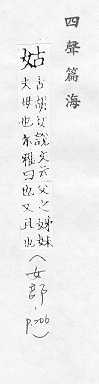 四聲篇海
姑 古胡切說文云父之姊妹
夫母也尔雅曰也又且也
(女部，p.706)